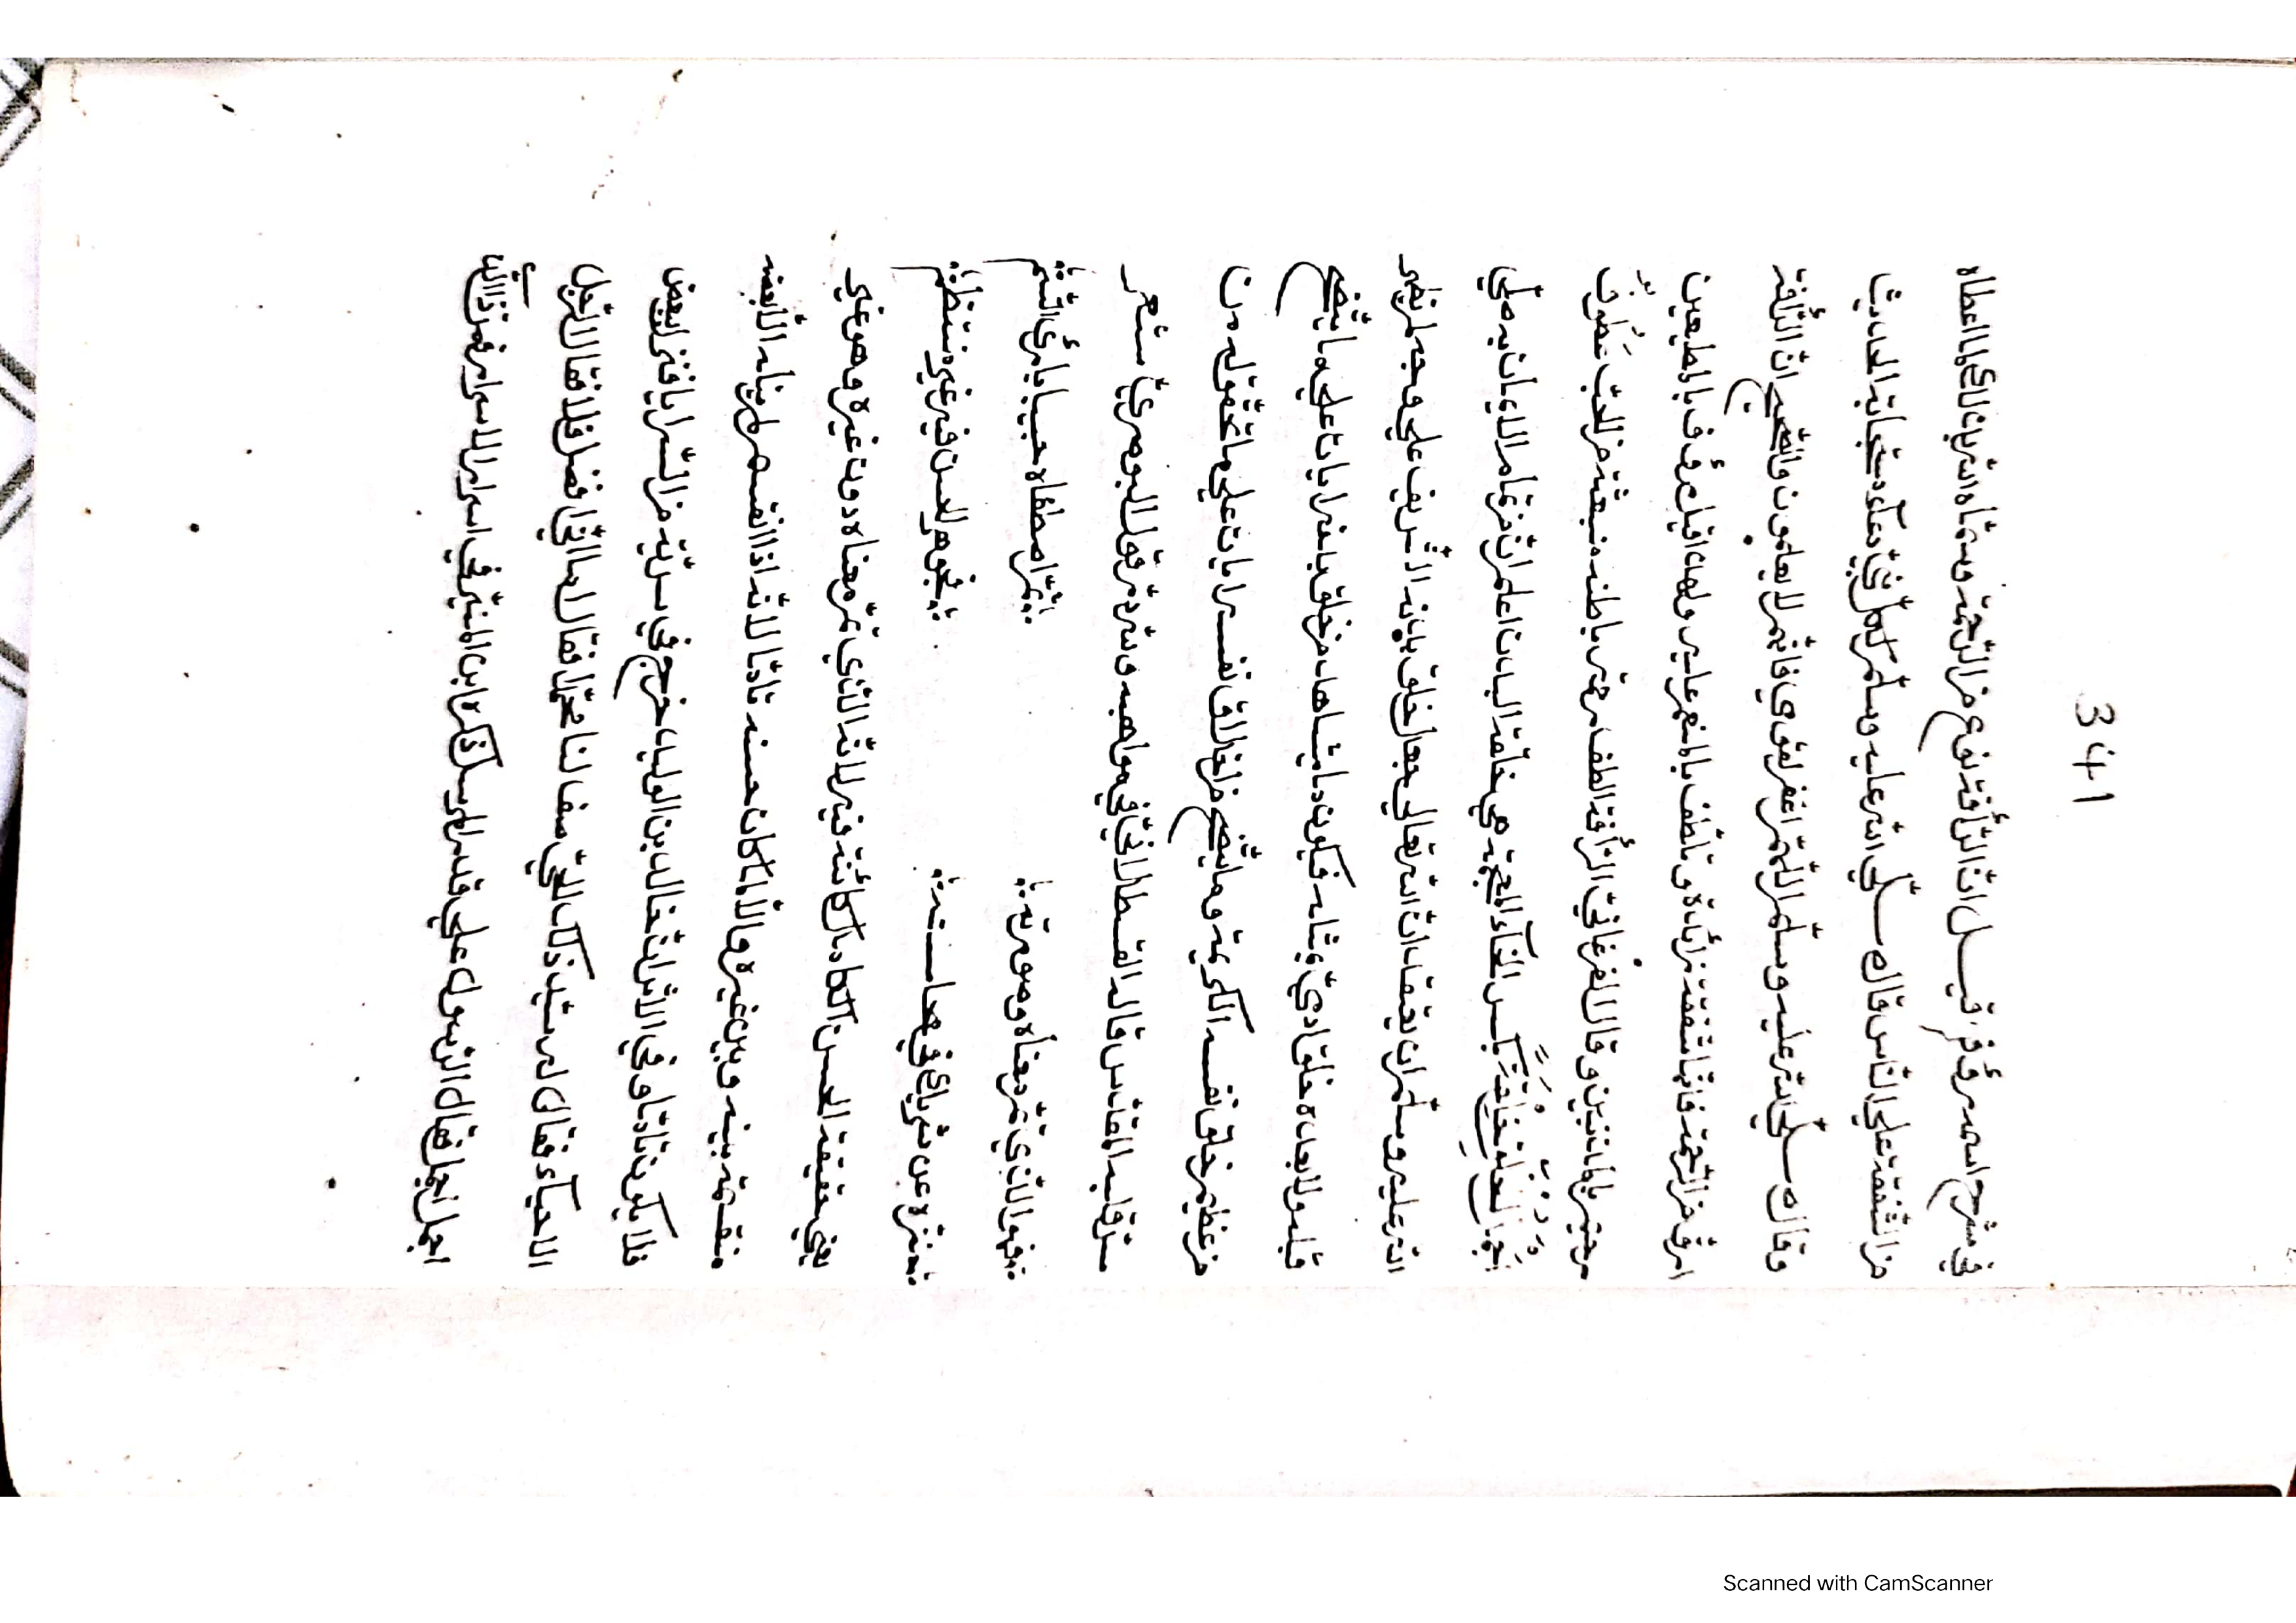 341
في شرح اسمه رؤف قيل ان الرأفة نوع من الرحمة وسماه الله بذلك لما اعطاه
من الشفقة على الناس قال صلى الله عليه وسلم لكل نبي دعاء مستجابة الحديث
وقال صلى الله عليه وسلم اللهم اغفر لقومي فانهم لا يعلمون والصحيح ان الرأفة
ارق من الرحمة فانها شفقة زائدة وتلطف بالمنعم عليه ولهذا قيل رؤف بالمطيعين
رحيم بالمذنبين وقال الفرغاني الرأفة الطف رحمة باطنه منبعثة من الحب
صلى
الله عليه وسلم ان يعتقد ان الله تعالى جعل خلق بدنه الشريف على وجه لم يظهر
قبله ولا بعده خلق آدمي مثله فيكون ما يشاهد من خلق بدنه ايات على ما يتضح
من عظيم خلق نفسه الكريمة وما يتضح من اخلاق نفسه ايات على ما تحقق له من
سر قلبه المقدس قاله القسطلاني في مواهبه ولله در قول البوصيري شعر
فهو الذي تم معناه وصورته
ثم اصطفاه حبيبا بارئ النسم
منزه عن شريك في محاسنه
فجوهر الحسن فيه غير منقسم
يعني حقيقة الحسن الكامل كائنة فيه لانه الذي تم معناه دون غيره وهو غير
منقسمة بينه وبين غيره والا لما كان حسنه تاما لانه اذا انقسم لم ينله الا بعضه
فلا يكون تاما وفي الاثر ان خالد بن الوليد خرج في سرية من السرايا فنزل ببعض
الاحياء فقال له سيد ذلك الحي صف لنا محمدا فقال اما اني افصل فلا فقال الرجل
اجمل اجمل فقال الرسول على قدر المرسل ذكره ابن المنير في اسرار الاسراء فمن ذا الذي
Scanned with CamScanner